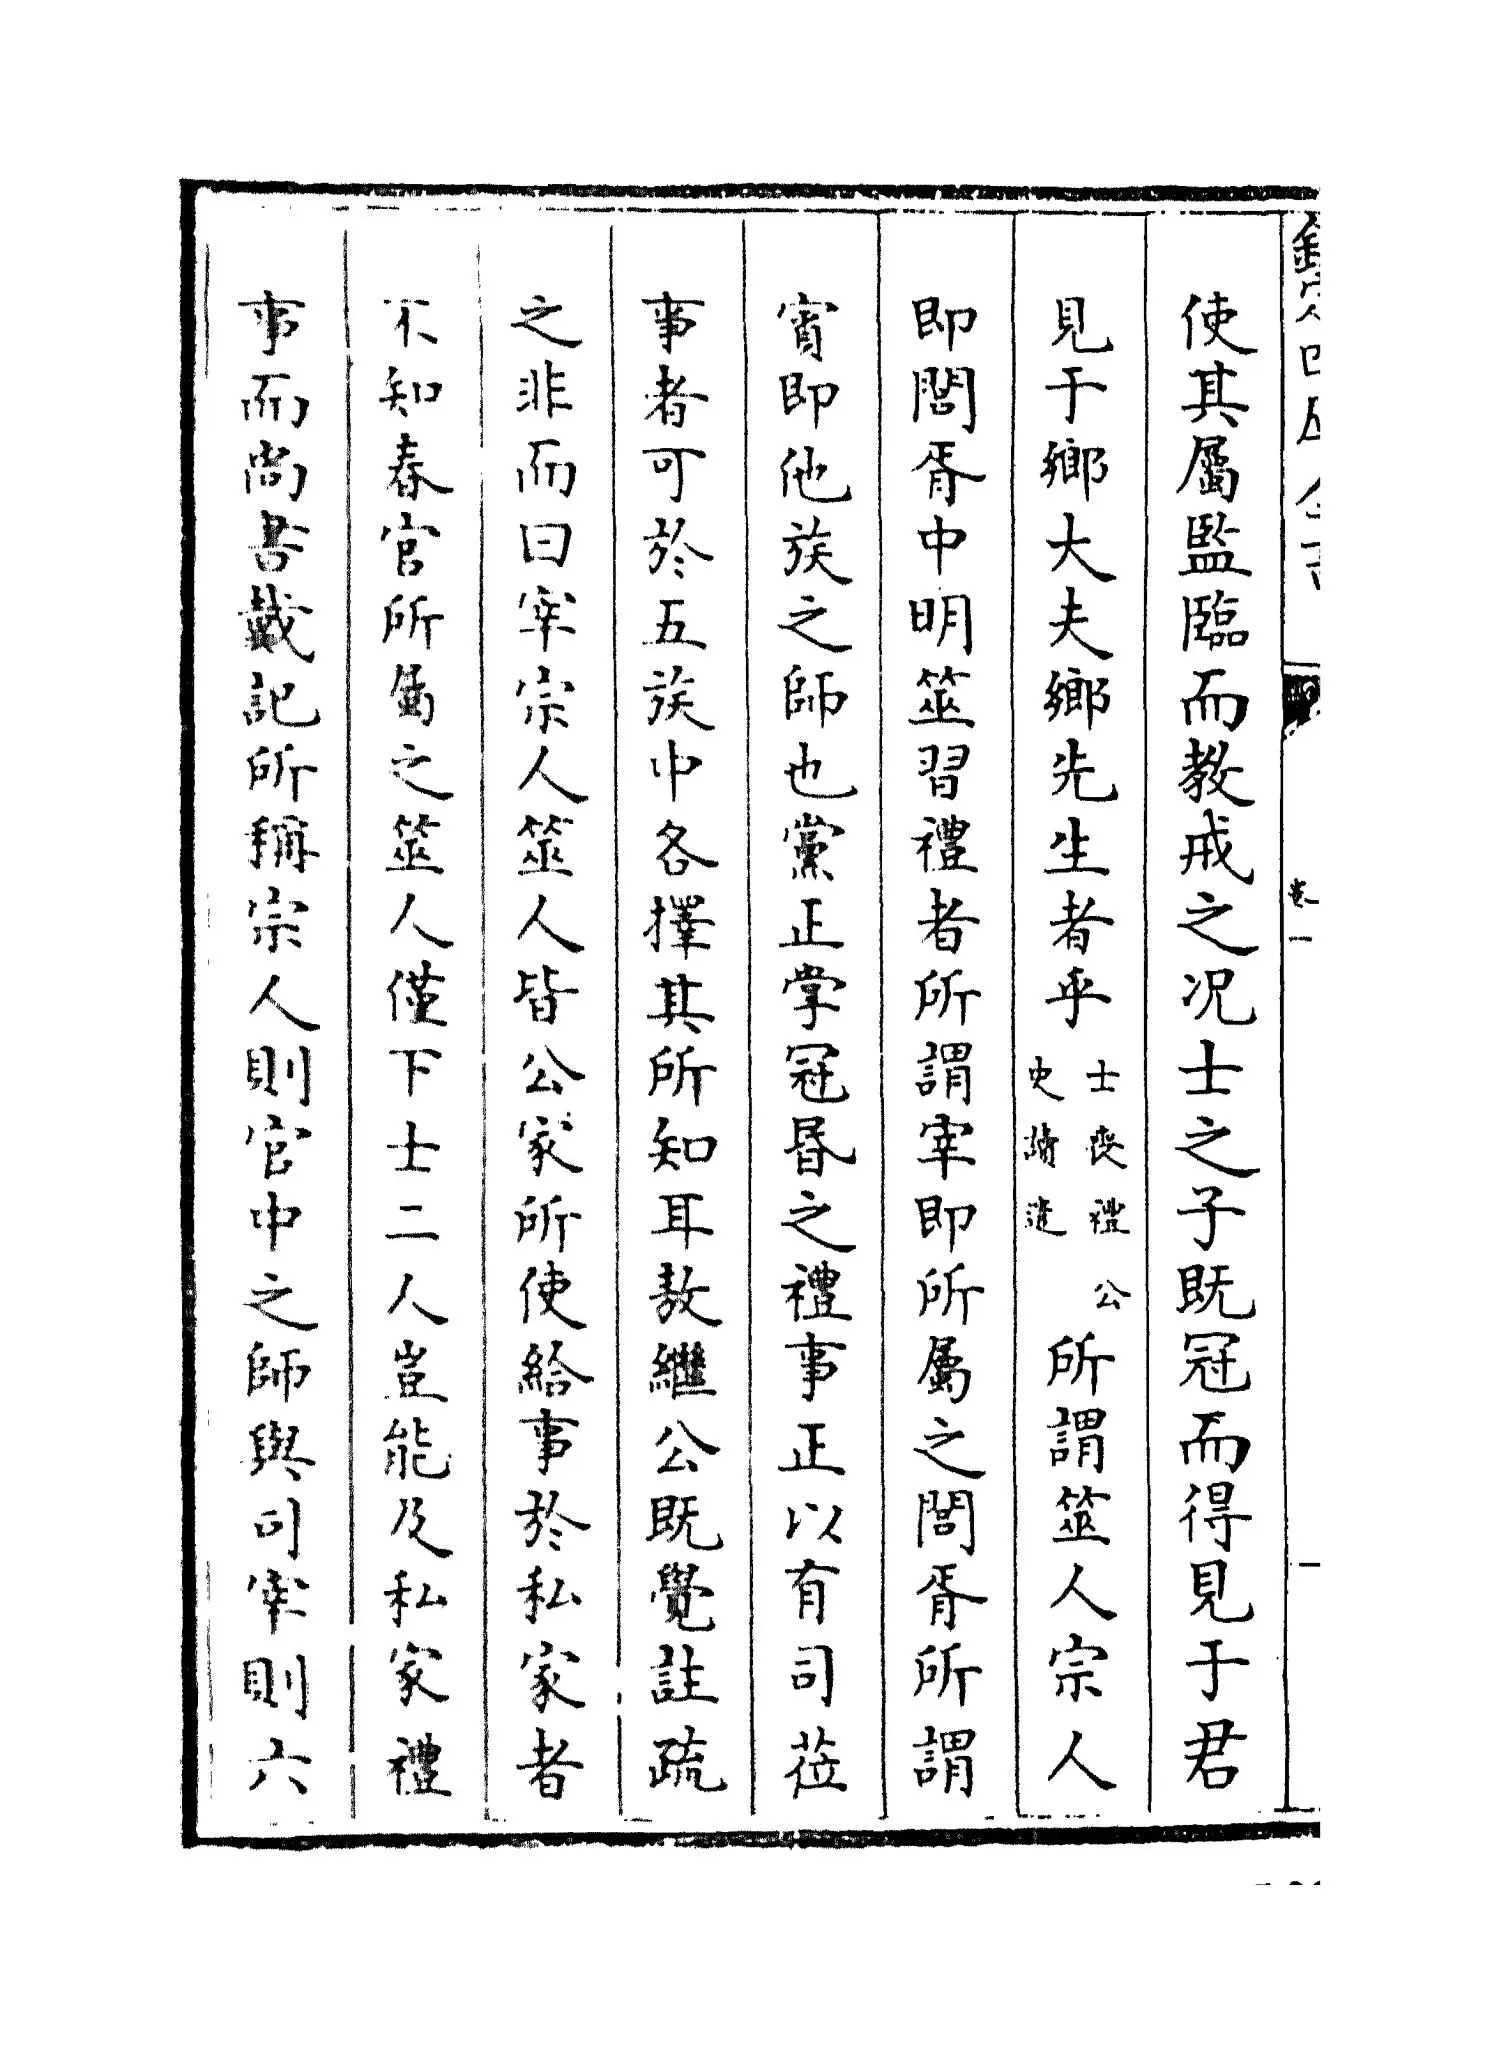 欽定四庫全書
卷一
使其屬監臨而教戒之况士之子既冠而得見于君
見于鄉大夫鄉先生者乎士喪禮公史讀遣所謂筮人宗人
即閭胥中明筮習禮者所謂宰即所屬之閭胥所謂
賔即他族之師也黨正掌冠昏之禮事正以有司蒞
事者可於五族中各擇其所知耳敖繼公既覺註疏
之非而曰宰宗人筮人皆公家所使給事於私家者
不知春官所屬之筮人僅下士二人豈能及私家禮
事而尚書戴記所稱宗人則官中之師與司宰則六